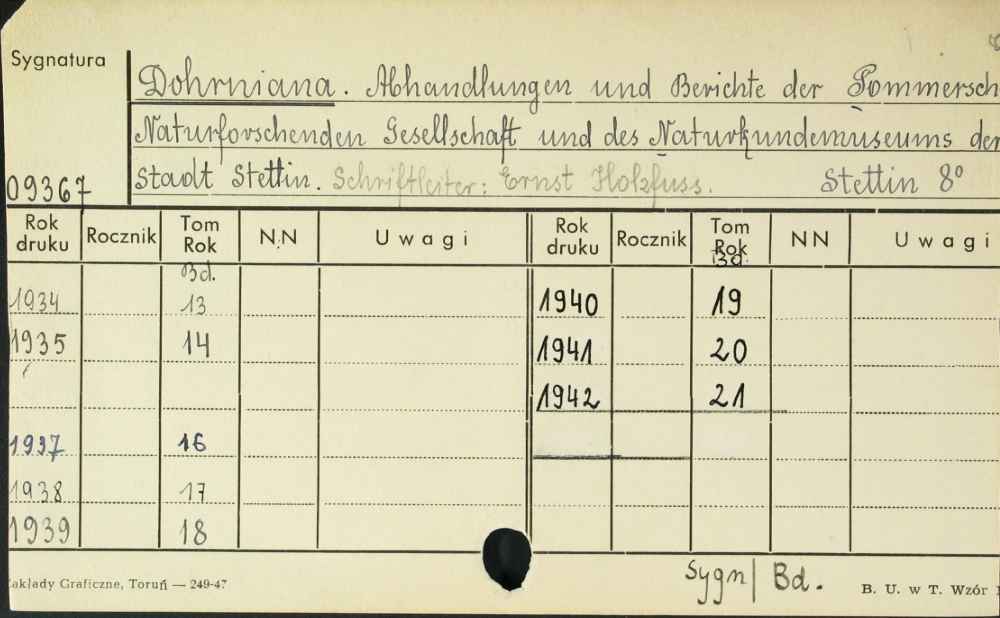 Sygnatura
Dohrniana. Abhandlungen und Berichte der Pommersch
Naturforschenden Gesellschaft und des Naturkundemuseums der
Stadt Stettin. Schriftleiter: Ernst Holzfuss. Stettin 8°
09367
Rok druku Rocznik Tom Rok N.N Uwagi Rok druku Rocznik Tom Rok NN Uwagi
Bd. Bd.
1934 13 1940 19
1935 14 1941 20
1942 21
1937 16
1938 17
1939 18
Sygn | Bd.
akłady Graficzne, Toruń — 249-47 B. U. w T. Wzór